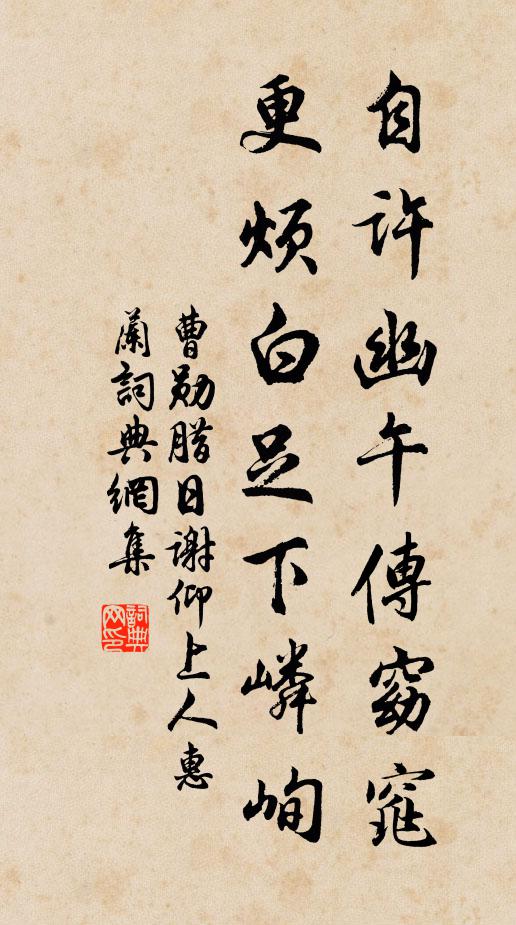 自許幽午傳窈窕
更煩白足下嶙峋
曹勛腊日謝仰上人惠
蘭詞典網集
詞典网印